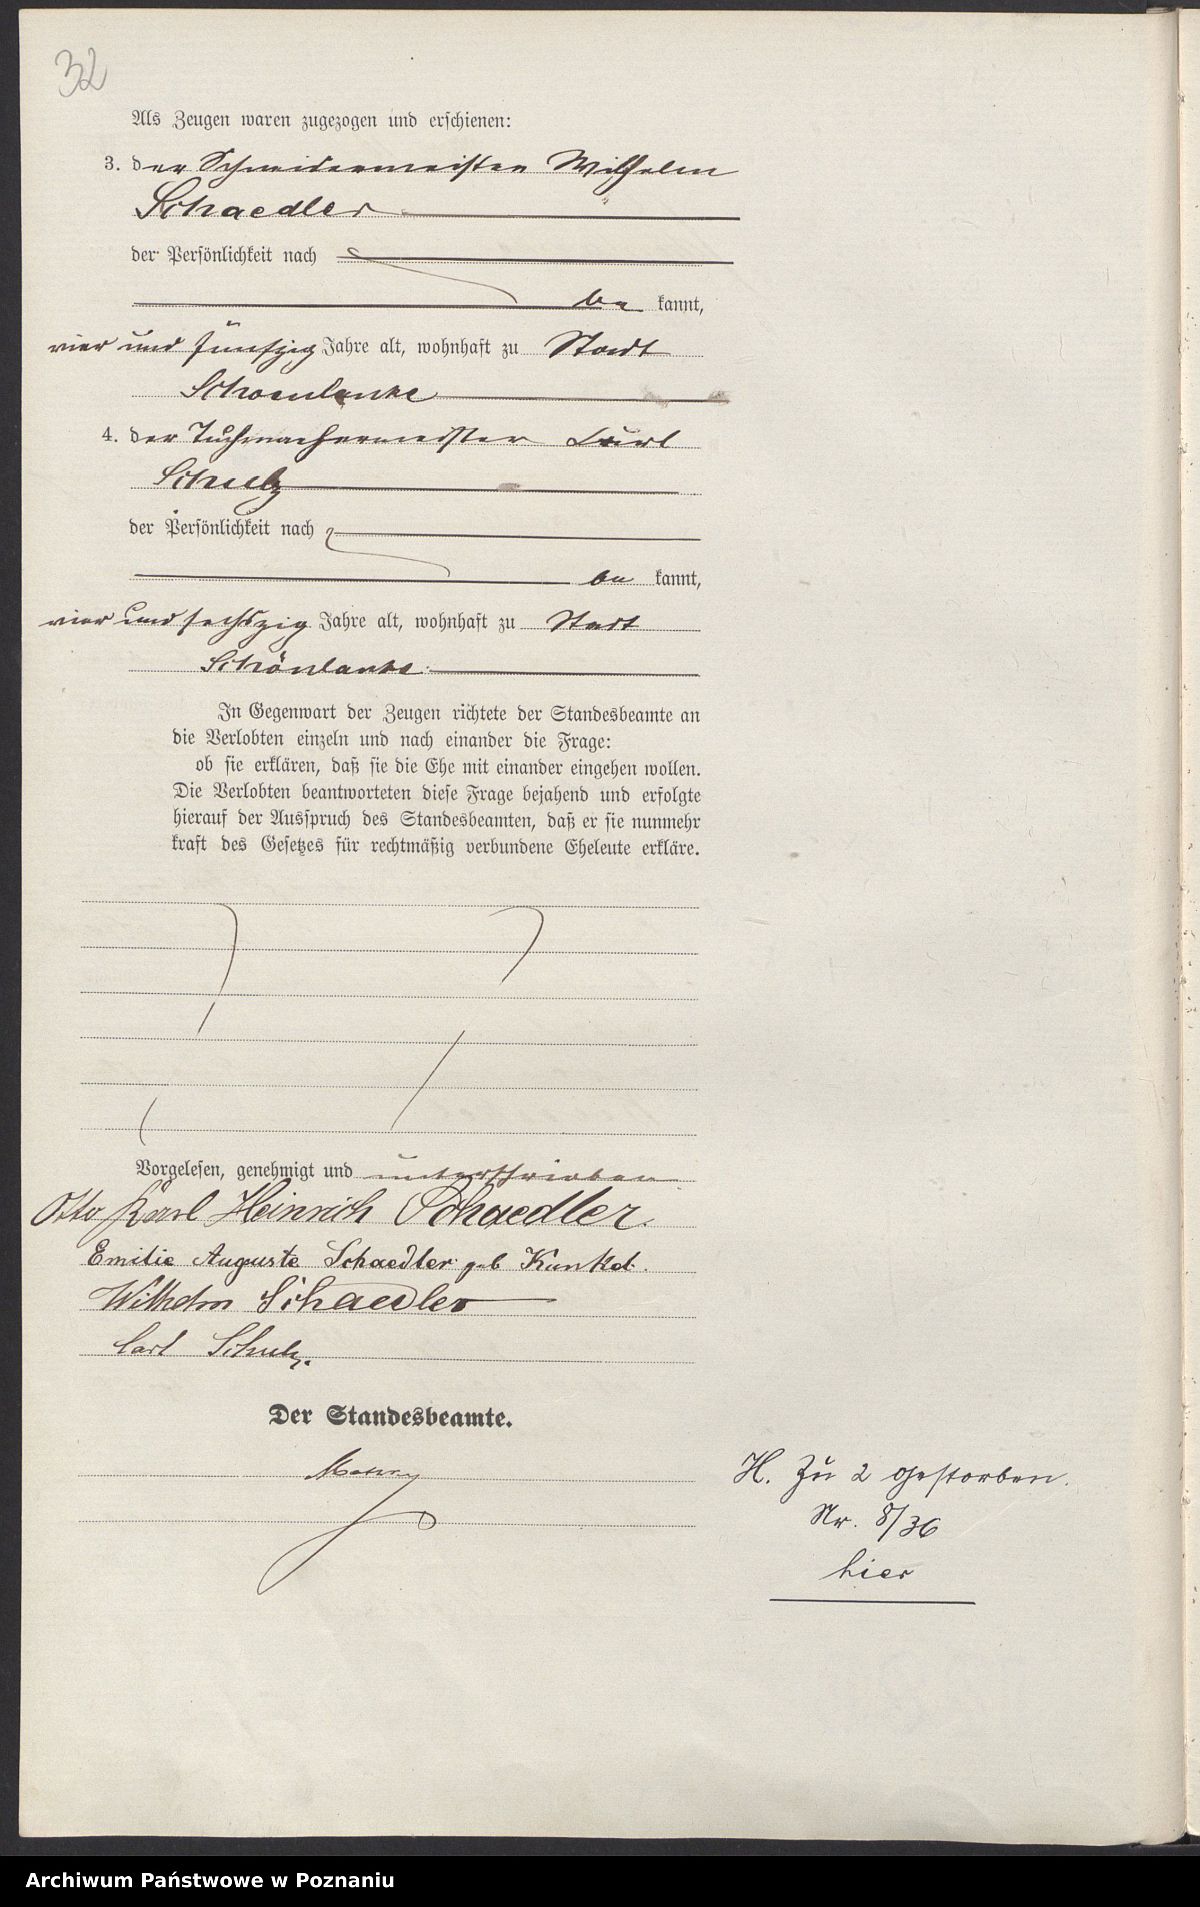 32
Als Zeugen waren zugezogen und erschienen:
3. der Schneidermeister Wilhelm
Schaedler
der Persönlichkeit nach
be kannt,
vier und fünfzig Jahre alt, wohnhaft zu Stadt
Schoenlanke
4. der Tuchmachermeister Carl
Schulz
der Persönlichkeit nach
be kannt,
vier und sechszig Jahre alt, wohnhaft zu Stadt
Schönlanke.
In Gegenwart der Zeugen richtete der Standesbeamte an
die Verlobten einzeln und nach einander die Frage:
ob sie erklären, daß sie die Ehe mit einander eingehen wollen.
Die Verlobten beantworteten diese Frage bejahend und erfolgte
hierauf der Ausspruch des Standesbeamten, daß er sie nunmehr
kraft des Gesetzes für rechtmäßig verbundene Eheleute erkläre.
Vorgelesen, genehmigt und unterschrieben
Otto Karl Heinrich Schaedler.
Emilie Auguste Schaedler geb Kunkel.
Wilhelm Schaedler
Carl Schulz.
Der Standesbeamte.
H. Zu 2 gestorben.
Nr. 8/36
hier
Archiwum Państwowe w Poznaniu